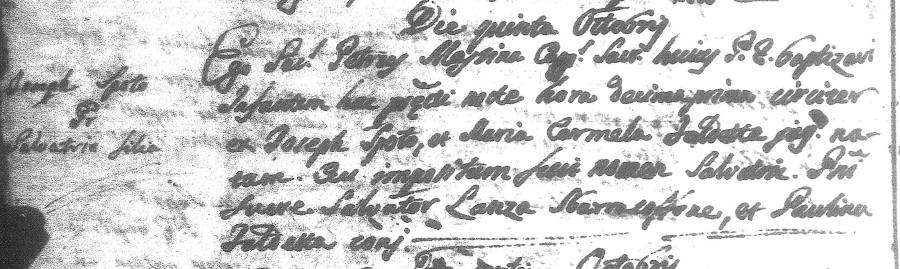 Die quinta Octobris
Joseph Spoto
Fr
Salvatrix filia
Ego Sac.^s Petrus Messina Capp.^s Sacr. huius P. E. baptizavi
Infantem hac præcti nocte hora decimaprima circiter
ex Joseph Spoto, et Maria Carmela Faldetta jug.^s na-
tam. Cui impositum fuit nomen Salvatrix. Pñi
fuere Salvator Lanza et Paulina
Faldetta conj.
Octobris